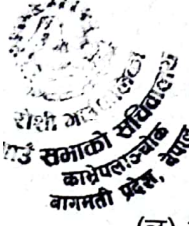 रोशी गाउँपालिका
गाउँ सभाको सचिवालय
काभ्रेपलाञ्चोक
बागमती प्रदेश, नेपाल